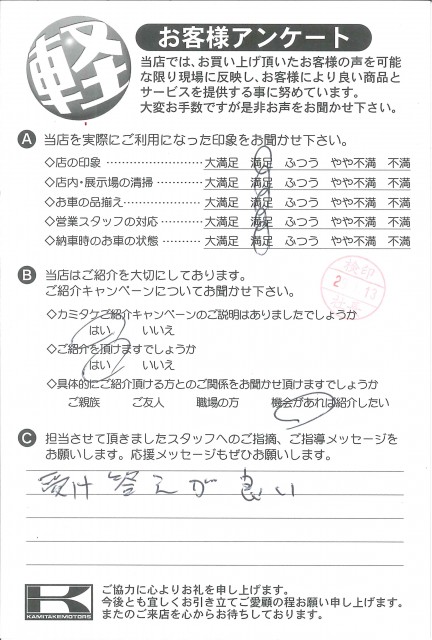 軽
お客様アンケート
当店では、お買い上げ頂いたお客様の声を可能
な限り現場に反映し、お客様により良い商品と
サービスを提供する事に努めています。
大変お手数ですが是非お声をお聞かせ下さい。
A 当店を実際にご利用になった印象をお聞かせ下さい。
◇店の印象 ………………… 大満足 満足 ふつう やや不満 不満
◇店内・展示場の清掃 ………… 大満足 満足 ふつう やや不満 不満
◇お車の品揃え ……………… 大満足 満足 ふつう やや不満 不満
◇営業スタッフの対応 ………… 大満足 満足 ふつう やや不満 不満
◇納車時のお車の状態 ………… 大満足 満足 ふつう やや不満 不満
B 当店はご紹介を大切にしております。
ご紹介キャンペーンについてお聞かせ下さい。
検印
2 13
◇カミタケご紹介キャンペーンのご説明はありましたでしょうか
はい いいえ
◇ご紹介を頂けますでしょうか
はい いいえ
◇具体的にご紹介頂ける方とのご関係をお聞かせ頂けますでしょうか
ご親族 ご友人 職場の方 機会があれば紹介したい
C 担当させて頂きましたスタッフへのご指摘、ご指導メッセージを
お願いします。応援メッセージもぜひお願いします。
受け答えが良い
K
KAMITAKEMOTORS
ご協力に心よりお礼を申し上げます。
今後とも宜しくお引き立てご愛顧の程お願い申し上げます。
またのご来店を心からお待ちしております。